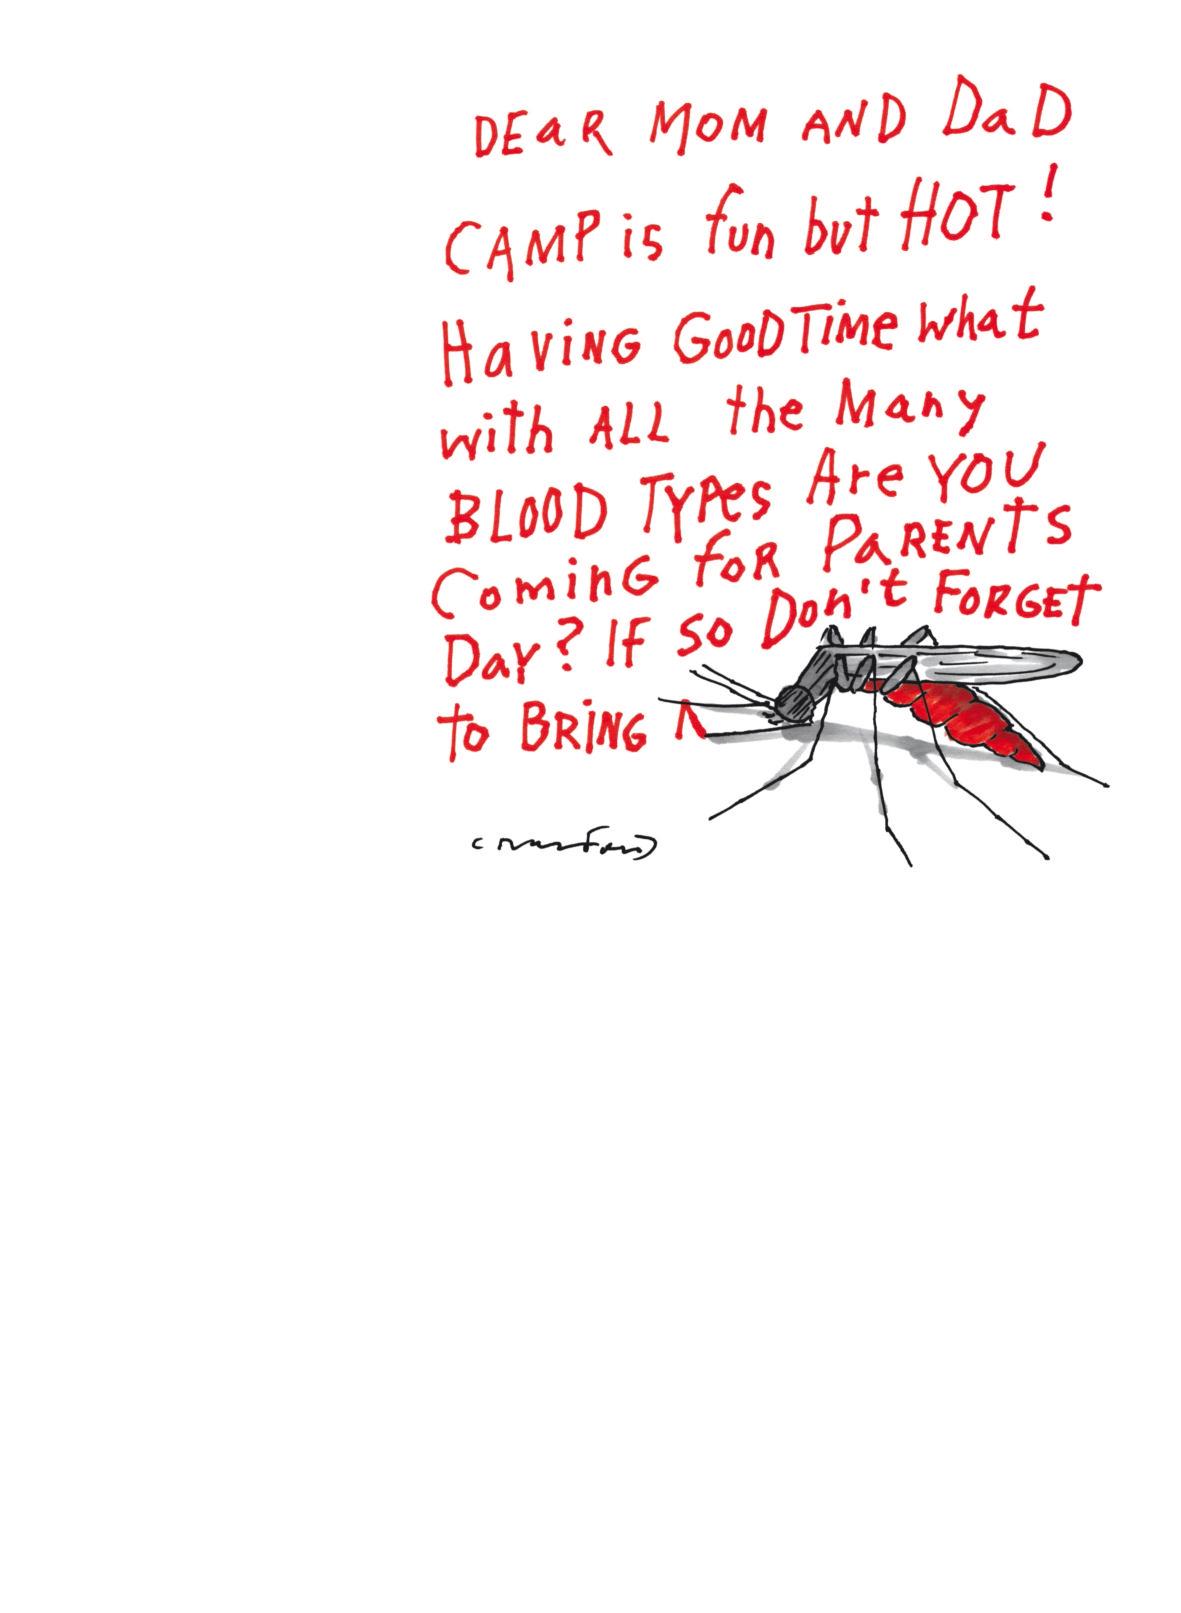 DEaR MOM AND DaD
CAMP is fun but HOT!
HaViNG GOOD TiMe What
with ALL the Many
BLOOD TYPes Are YOU
CominG foR PaRENTS
Day? If so Don't FORGET
to BRiNG